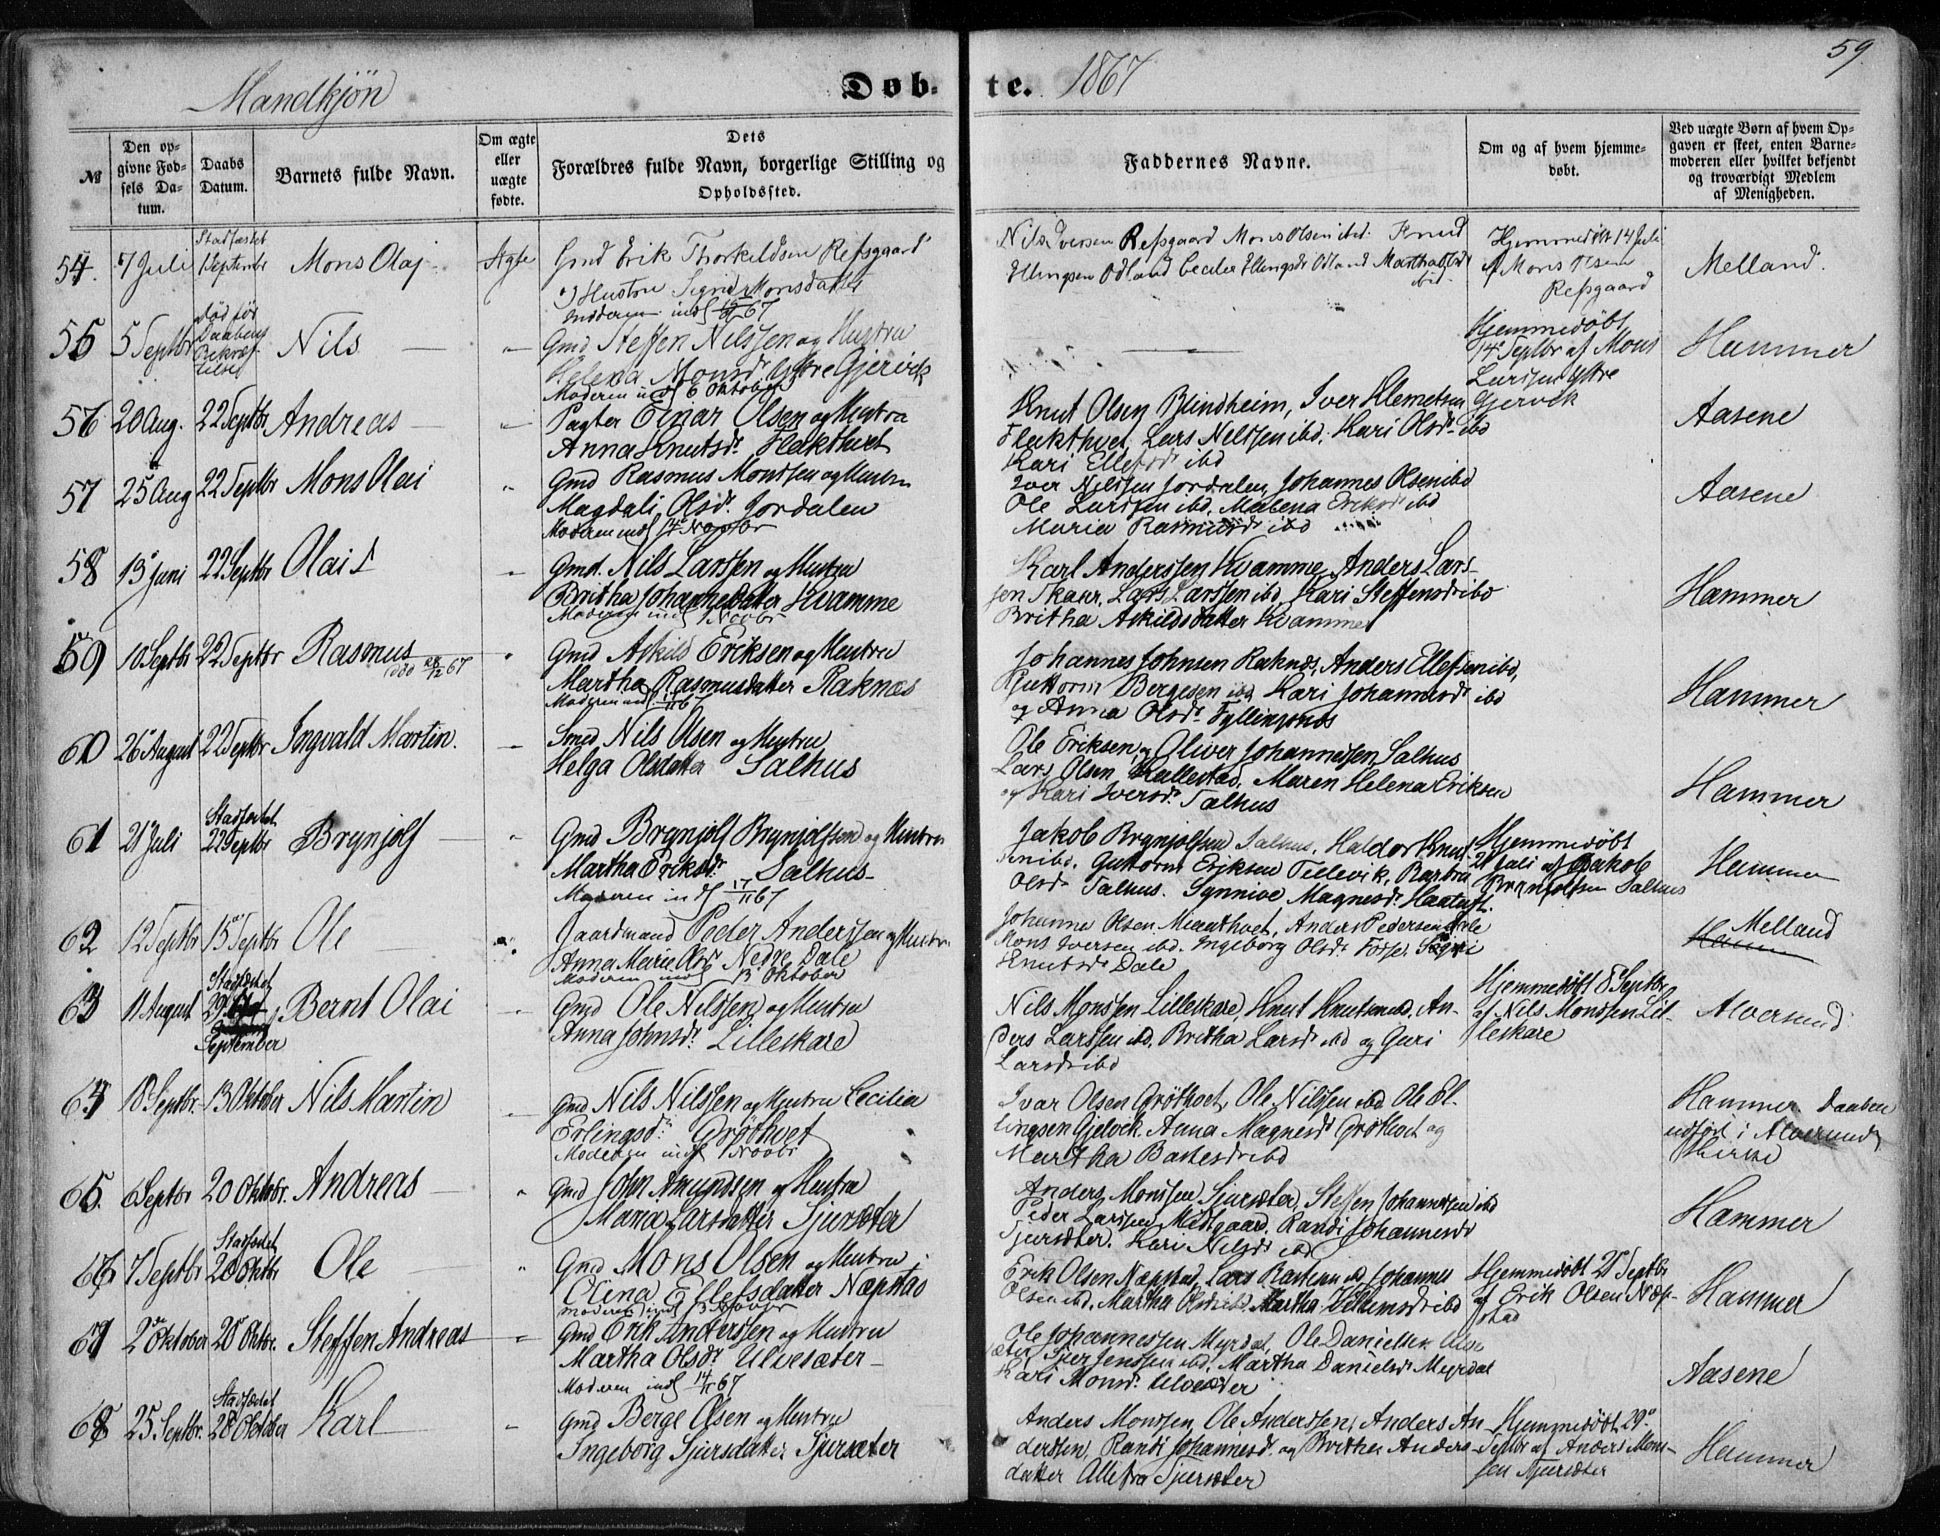 59.
Mandkjön
Døb-
te. 1867
№
Den op-
givne Fød-
sels Da-
tum.
Daabs
Datum.
Barnets fulde Navn.
Om ægte
eller
uægte
fødte.
Dets
Forældres fulde Navn, borgerlige Stilling og
Opholdssted.
Faddernes Navne.
Om og af hvem hjemme-
døbt.
Ved uægte Børn af hvem Op-
gaven er skeet, enten Barne-
moderen eller hvilket bekjendt
og troværdigt Medlem
af Menigheden.
54. 7 Juli
Stadfæstet
1 Septembr
Mons Olaj
Ægte
Gmd Erik Thorkildsen Refsgaard
Hustru Sigrid Monsdatter
Moderen indl 67
Nils Iversen Refsgaard Mons Olsen ibid. Knud
Ellingsen Odland Cecilie Ellingsdr Odland Martha
ibid.
Hjemmedöbt 14 Juli
af Mons Olsen
Refsgaard
Melland.
55 5 Septbr
död för
Daabens
Bekræf-
telse
Nils
Gmd Steffen Nilssen og Hustru
Helena Monsdr. Ystre Gjervik
Moderen indl 6 Oktober
Hjemmedöbt
14 Septbr af Mons
Larssen Ystre
Gjervik
Hammer
56 20 Aug. 22 Septbr Andreas
Pagter Einar Olsen og Hustru
Anna Knutsdr. Flakthvet
Knut Olsen Blindheim, Iver Klemetsen
Flakthvet, Lars Nilssen ibd. Kari Olsdr ibd
Kari Ellefsdr ibd
Aasene
57 25 Aug 22 Septbr Mons Olai
Gmd Rasmus Monssen og Hustru
Magdali Olsdr. Jordalen
Moderen indl 14 Novbr
Iver Nilssen Jordalen, Johannes Olsen ibd
Ole Larssen ibd. Malena Eriksdr ibd
Maria Rasmusdr ibd
Aasene
58 13 juni 22 Septbr Olai
Gmd. Nils Larssen og Hustru
Britha Johannesdatter Kvamme
Moderen indl Novbr
Karl Anderssen Kvamme, Anders Lars-
sen Skaur. Lars Larssen ibd, Kari Steffensdr ibd
Britha Askildsdatter Kvamme
Hammer
59 10 Septbr 22 Septbr Rasmus
död 28/12 67
Gmd Askild Eriksen og Hustru
Martha Rasmusdatter Raknes
Moderen indl
Johannes Johnsen Raknes, Anders Ellefsen ibd,
Guttorm Bergesen ibd, Kari Johannesdr ibd
og Anna Olsdr. Fyllingsnes
Hammer
60 26 August 22 Septbr Ingvald Martin.
Smed Nils Olsen og Hustru
Helga Olsdatter Salhus
Ole Eriksen, og Oliver Johannessen, Salhus
Lars Olsen Kallestad, Maren Helena Eriksen
og Kari Iversdr. Salhus
Hammer
61 21 Juli
Stadfæstet
22 Septbr
Brynjolf
Gmd Brynjolf Brynjolfsen og Hustru
Martha Eriksdr. Salhus
Moderen indl 17/11 67
Jakob Brynjolfsen Salhus, Haldor Knut-
sen ibd. Guttorm Eriksen Tellevik, Barbra
Olsdr Salhus. Synnive Magnesdr. Haatuft.
Hjemmedöbt
21 Juli af Jakob
Brynjolfsen Salhus
Hammer
62 12 Septbr 15 Septbr Ole
Gaardmand Peder Anderssen og Hustru
Anna Marie Olsdr Nedre Dale
Moderen indl 13 Oktober
Johanne Olsen Miaathvet, Anders Pedersen Dale
Mons Iversen ibd. Ingeborg Olsdr Fosse. Sigri
Knutsdr Dale
Melland
63 11 August
Stadfæstet
29
September
Bernt Olai
Gmd Ole Nilssen og Hustru
Anna Johnsdr. Lilleskare
Nils Monssen Lilleskare, Knut Knutsen ibd, An-
ders Larssen ibd. Britha Larsdr ibd og Guri
Larsdr ibd
Hjemmedöbt 8 Septbr
af Nils Monssen Lil-
leskare
Alversund
64 18 Septbr. 13 Oktober Nils Martin
Gmd Nils Nilssen og Hustru Cecilia
Erlingsdr. Gröthvet
Moderen indl Novbr
Ivar Olsen Gröthvet, Ole Nilssen ibd Ole El-
lingsen Gjelvik. Anna Magnesdr Gröthvet og
Martha Bakesdr ibd
Hammer Daaben
udfört i Alversund
Kirke
65. 6 Septbr 20 Oktobr. Andreas
Gmd John Amundsen og Hustru
Maria Larsdatter Sjursæter
Anders Monssen Sjursæter, Steffen Johannessen ibd
Peder Larssen Midtgaard, Randi Johannesdr
Sjursæter. Kari Nilsdr ibd
Hammer
66 7 Septbr
Stadfæstet
20 Oktbr
Ole
Gmd Mons Olsen og Hustru
Olina Ellefsdatter Næpstad
Moderen indl 13 Novbr
Erik Olsen Næpstad, Lars Rasmussen ibd, Johannes
Olsen ibd. Martha Olsdr ibd. Martha Villumsdr ibd
Hjemmedöbt 21 Septbr
af Erik Olsen Næp-
stad
Hammer
67 2 Oktober 20 Oktbr. Steffen Andreas
Gmd Erik Anderssen og Hustru
Martha Olsdr. Ulvesæter
Moderen indl 14/11 67
Ole Johannessen Myrdal, Ole Danielsen Ulve-
sæter, Sjur Jenssen ibd. Martha Danielsdr Myrdal
Kari Monsdr. Ulvesæter
Aasene
68 25 Septbr.
Stadfæstet
20 Oktober
Karl
Gmd Berge Olsen og Hustru
Ingeborg Sjursdatter Sjursæter
Anders Monssen, Ole Anderssen, Anders An-
derssen, Randi Johannesdr. og Britha Anders-
datter Alle fra Sjursæter
Hjemmedöbt 29
Septbr af Anders Mons-
sen Sjursæter
Hammer